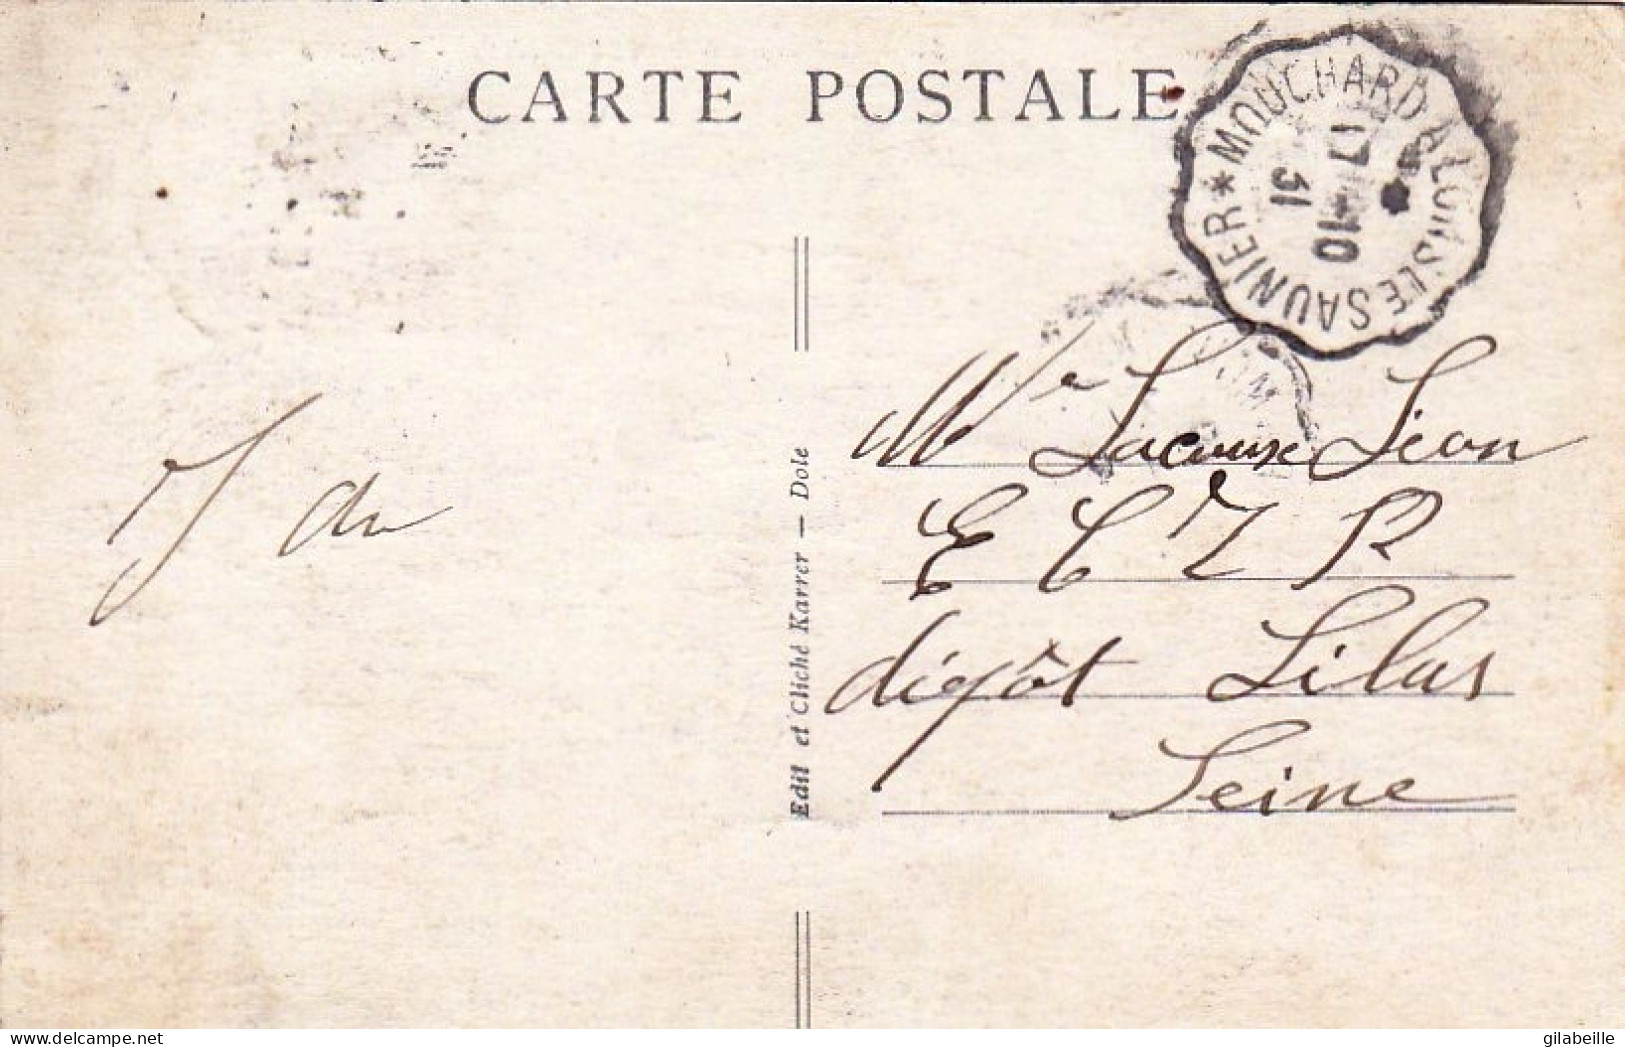 CARTE POSTALE
MOUCHARD A LONS LE SAUNIER *
17 -10
31
Edit et Cliché Karrer — Dole
Mr Lacroux Léon
E C I R
dépôt Lilas
Seine
gilabeille